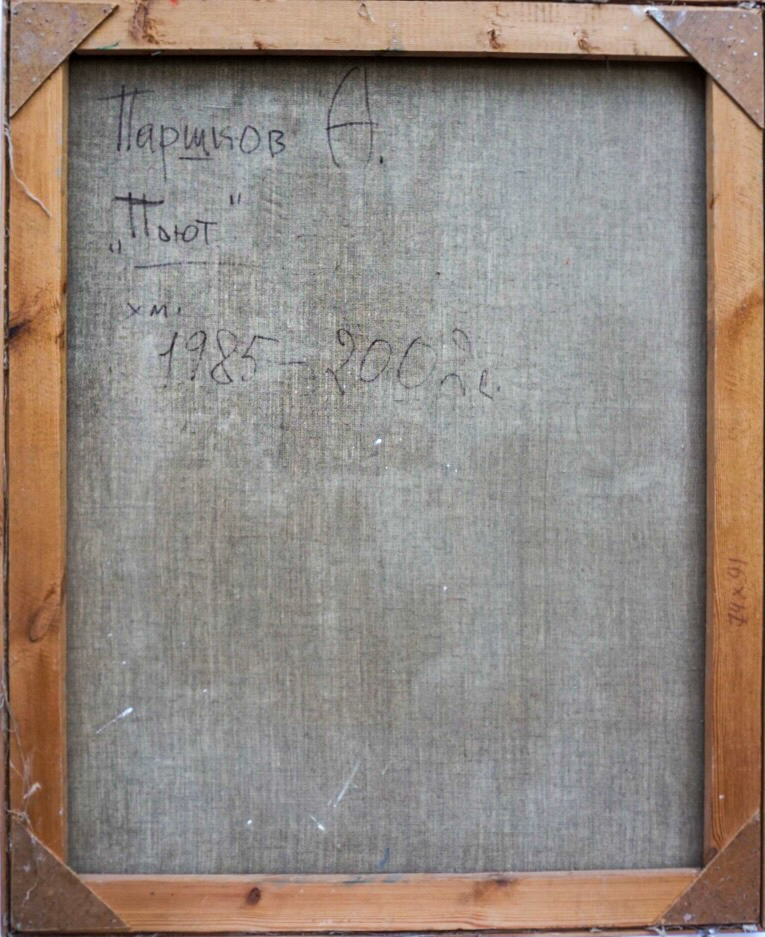 Паршков А.
„Пьют"
хм.
1985 – 2002 г.
74 x 91